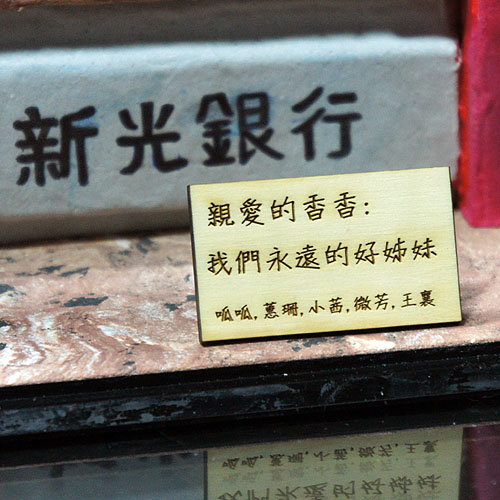 新光銀行
親愛的香香:
我們永遠的好姊妹
呱呱,蕙珊,小茜,微芳,王襄